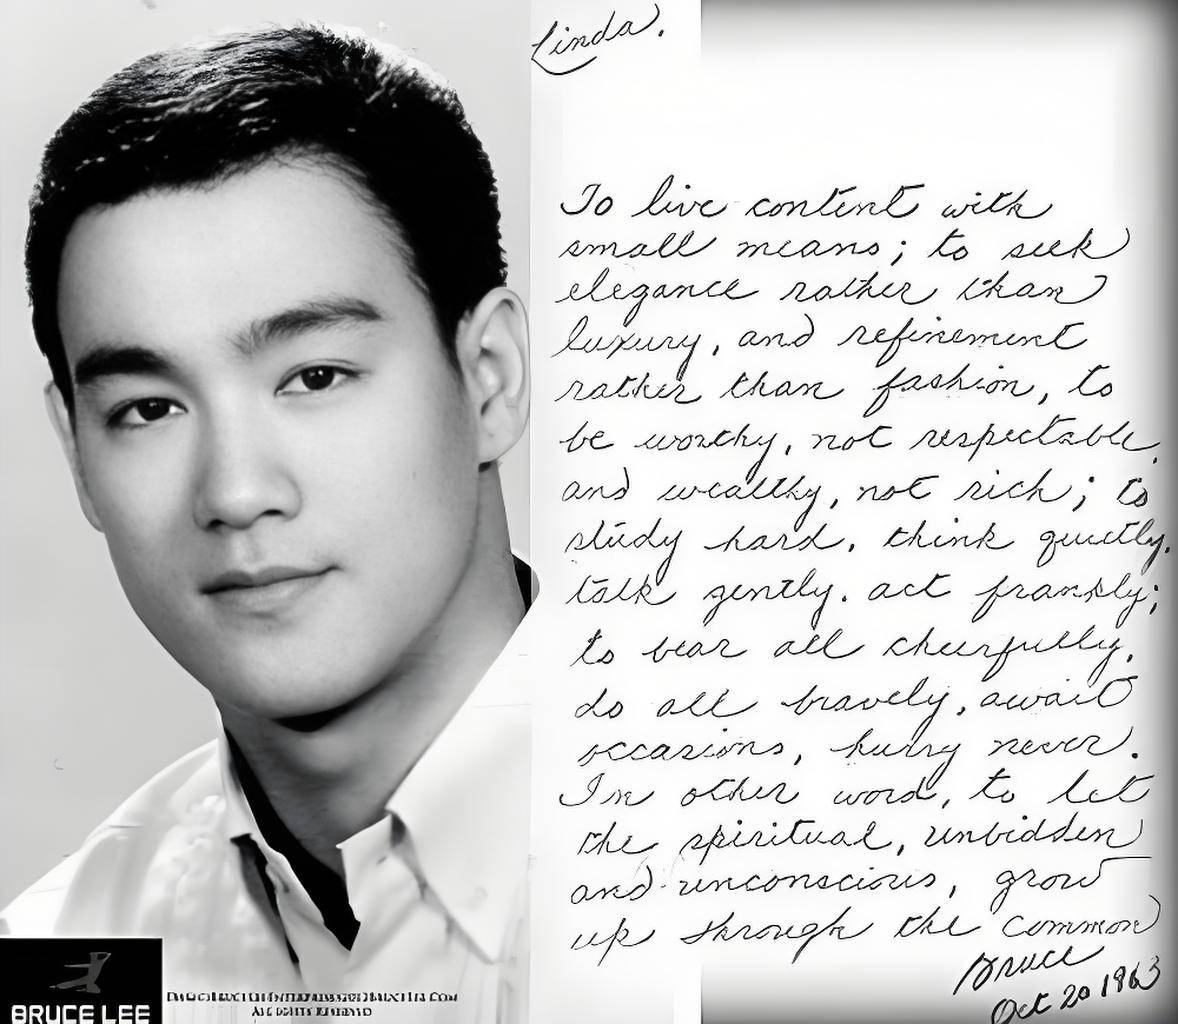 Linda.
To live content with
small means; to seek
elegance rather than
luxury, and refinement
rather than fashion, to
be worthy, not respectable,
and wealthy, not rich; to
study hard, think quietly,
talk gently, act frankly;
to bear all cheerfully,
do all bravely, await
occasions, hurry never.
In other word, to let
the spiritual, unbidden
and unconscious, grow
up through the common
Bruce
Oct 20 1963
BRUCE LEE
ALL RIGHTS RESERVED